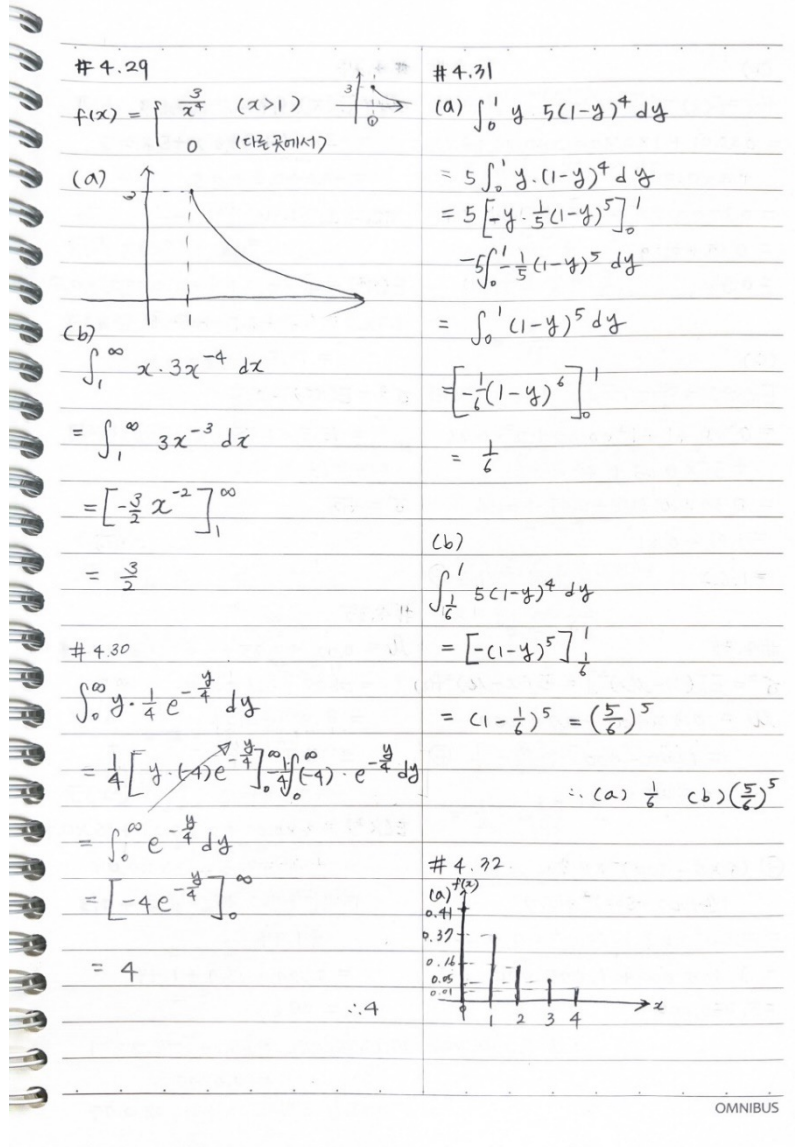 # 4.29
f(x) = { 3/x⁴ (x>1)
0 (다른 곳에서)
3
1
(a)
3
(b)
∫₁^∞ x · 3x⁻⁴ dx
= ∫₁^∞ 3x⁻³ dx
= [-3/2 x⁻²]₁^∞
= 3/2
# 4.30
∫₀^∞ y · 1/4 e^(-y/4) dy
= 1/4 [y · (-4)e^(-y/4)]₀^∞ - 1/4 ∫₀^∞ (-4) · e^(-y/4) dy
= ∫₀^∞ e^(-y/4) dy
= [-4e^(-y/4)]₀^∞
= 4
∴ 4
# 4.31
(a) ∫₀¹ y · 5(1-y)⁴ dy
= 5 ∫₀¹ y · (1-y)⁴ dy
= 5 [-y · 1/5 (1-y)⁵]₀¹
-5 ∫₀¹ -1/5 (1-y)⁵ dy
= ∫₀¹ (1-y)⁵ dy
= [-1/6 (1-y)⁶]₀¹
= 1/6
(b)
∫_(1/6)^1 5(1-y)⁴ dy
= [-(1-y)⁵]_(1/6)^1
= (1-1/6)⁵ = (5/6)⁵
∴ (a) 1/6 (b) (5/6)⁵
# 4.32
(a) f(x)
0.41
0.37
0.16
0.05
0.01
0 1 2 3 4 x
OMNIBUS